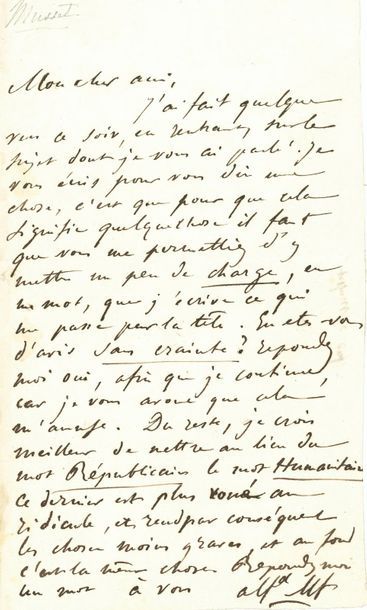 Musset
Mon cher ami,
J'ai fait quelques
vers ce soir, en rentrant, sur le
sujet dont je vous ai parlé. Je
vous écris pour vous dire une
chose, c'est que pour que cela
signifie quelquechose il faut
que vous me permettiez d'y
mettre un peu de charge, en
un mot, que j'écrive ce qui
me passe par la tête. En etes-vous
d'avis sans crainte? repondez
moi oui, afin que je continue,
car je vous avoue que cela
m'amuse. Du reste, je crois
meilleur de mettre au lieu du
mot Républicain le mot Humanitaire
ce dernier est plus voué au
ridicule, et rend par conséquent
les choses moins graves, et au fond
c'est la même chose. Repondez moi
un mot à vous Alfd Mt